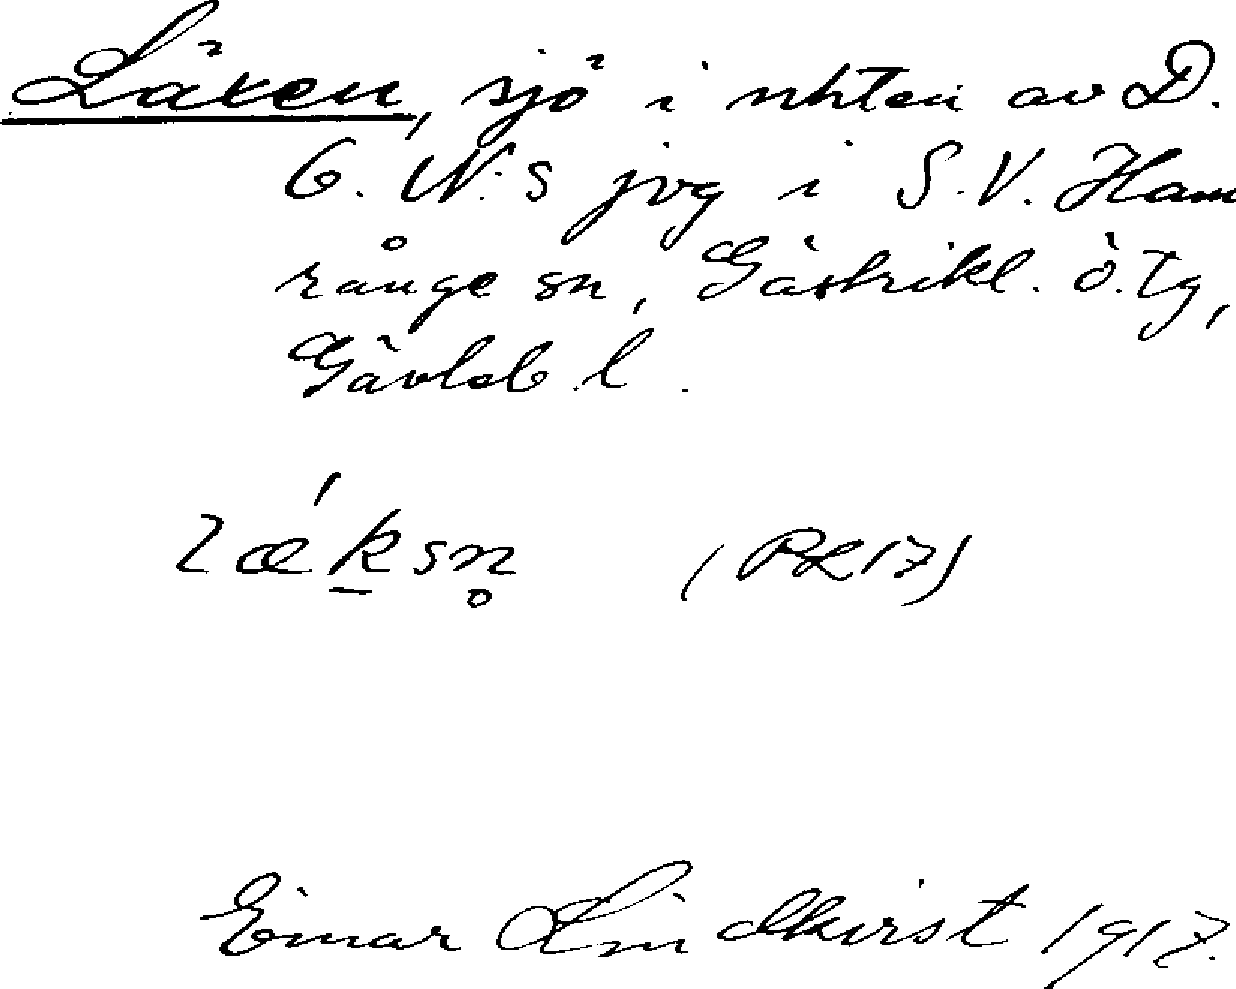 Läxen, sjö i nhten av Ö.
G. N:s jvg i S.V. Ham
rånge sn, Gästrikl. ö. tg,
Gävleb. l.
lǽksn̥ (PL17)
Einar Lindkvist 1917.